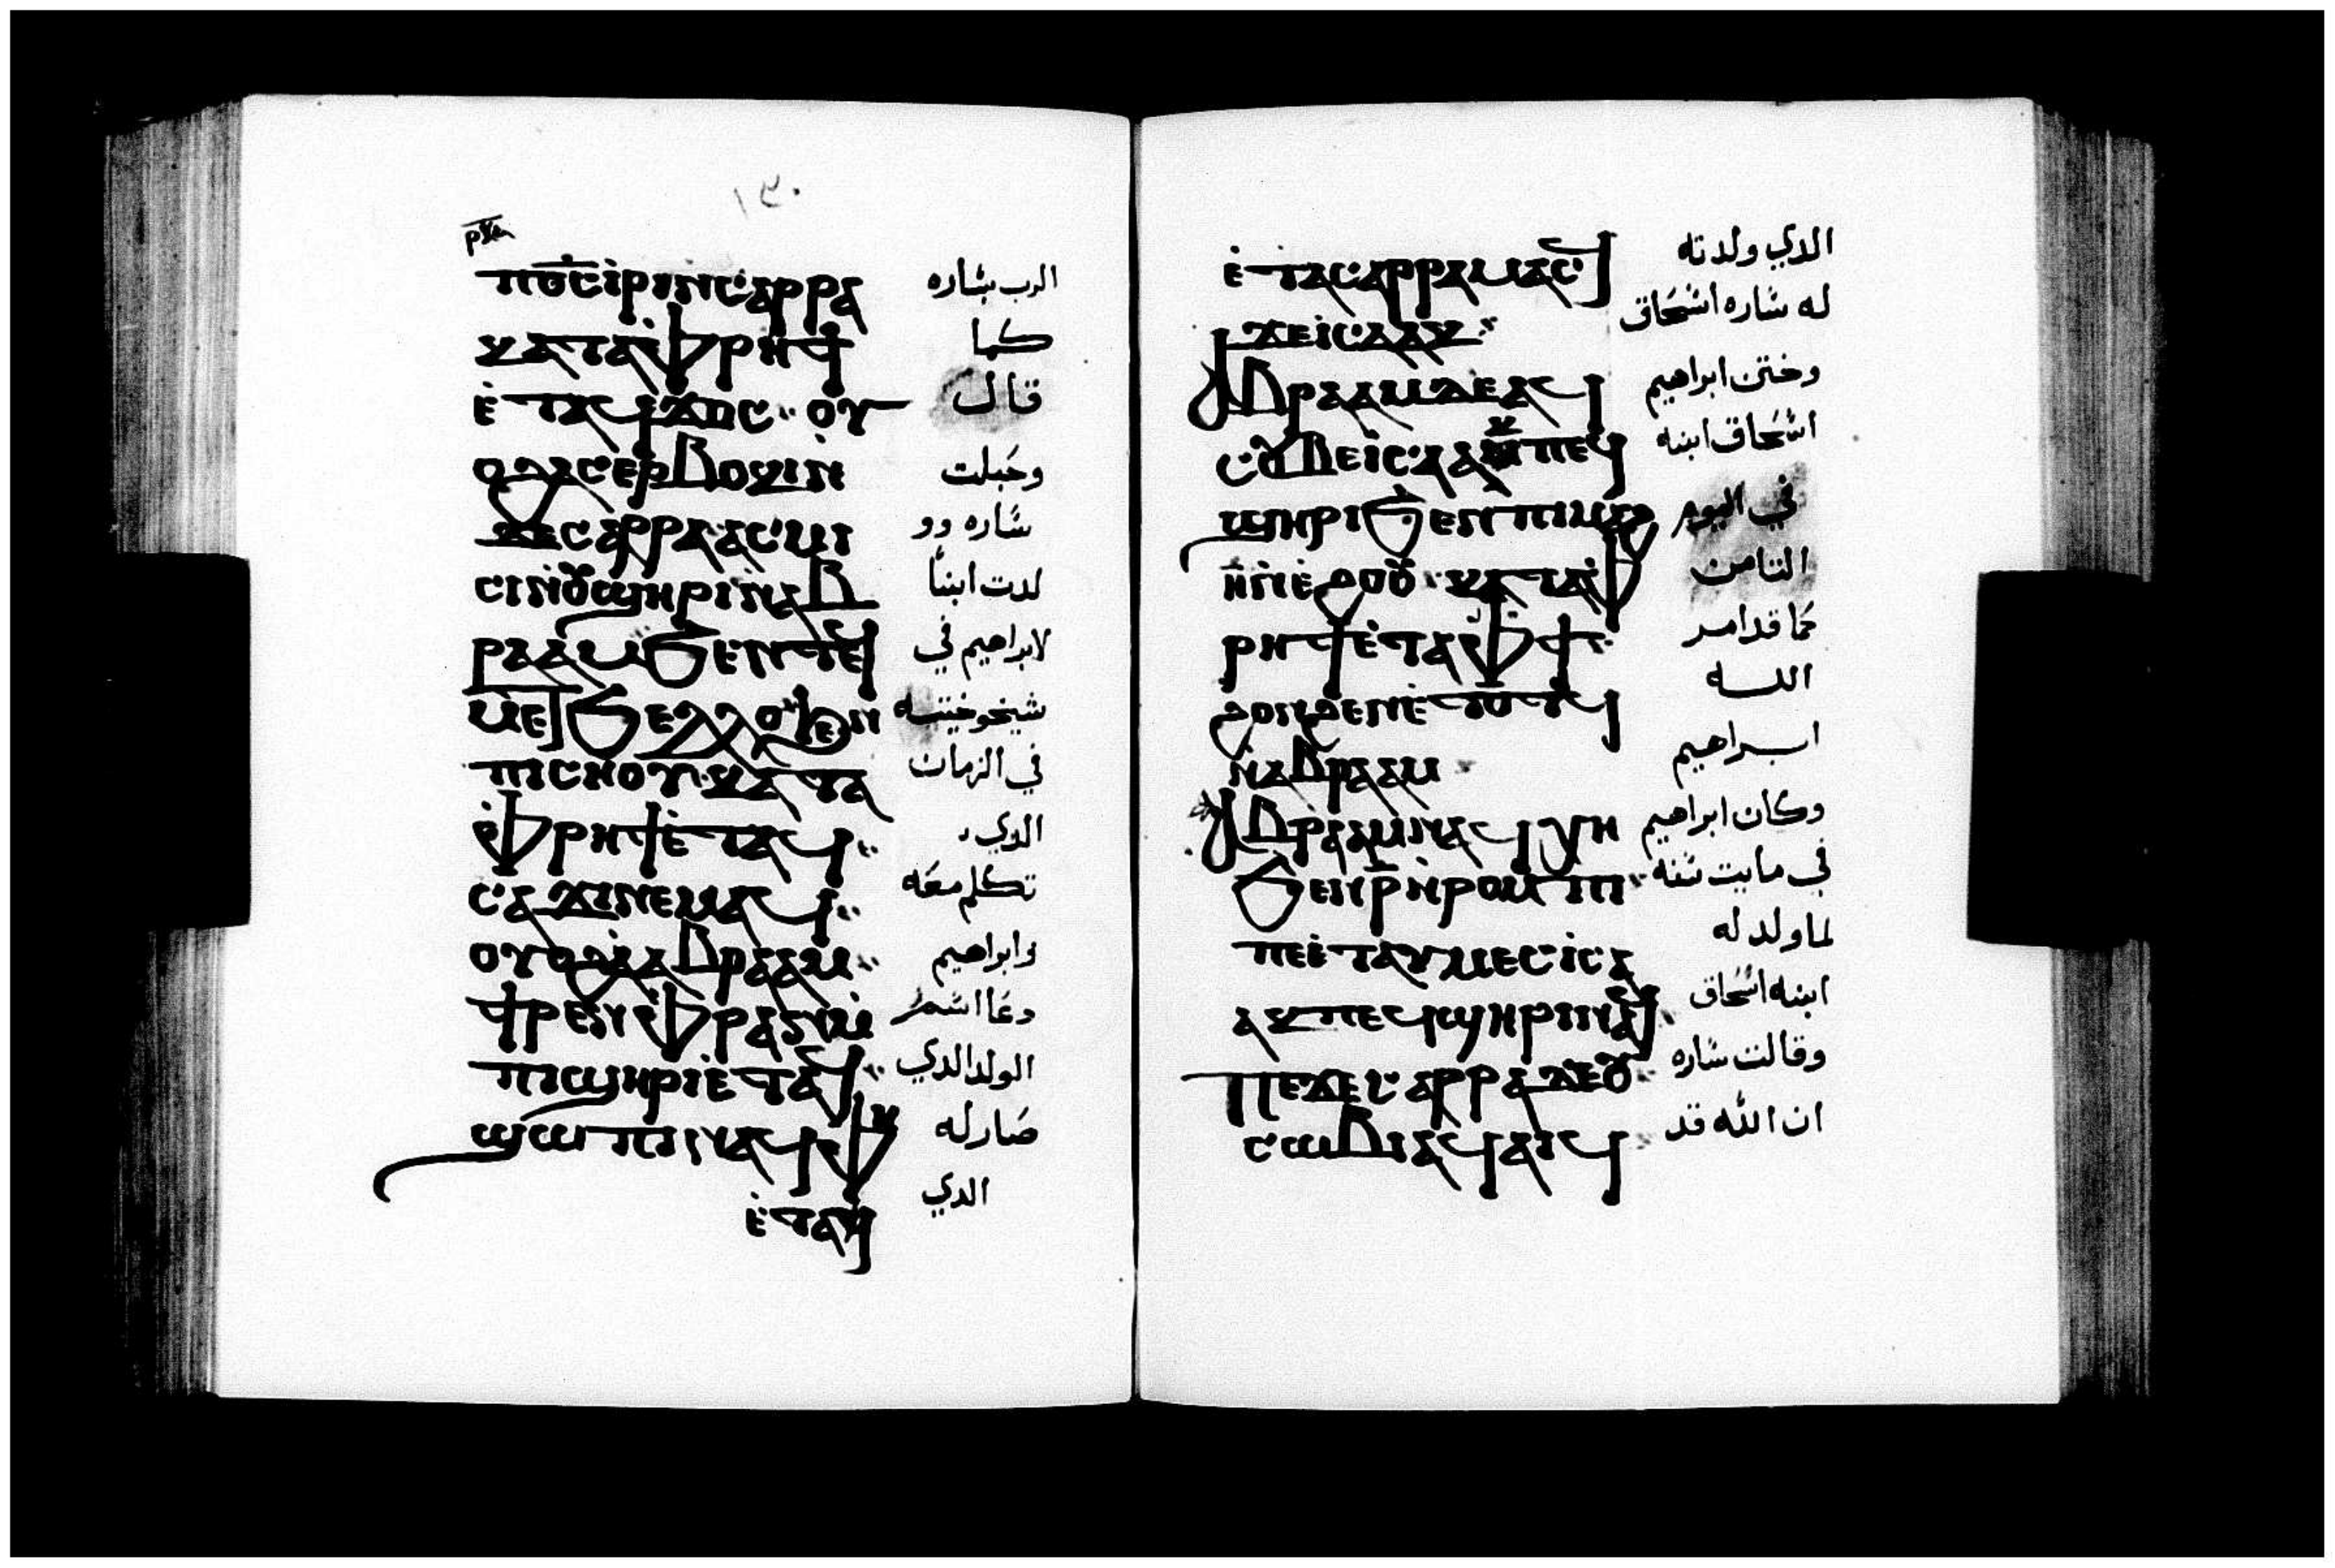 ١٣٠
ⲡⲟ̅ⲥ̅ ⲓ̀ⲣⲓ ⲛ̀ⲥⲁⲣⲣⲁ الرب بشاره
ⲕⲁⲧⲁ ⲫ̀ⲣⲏϯ كما
ⲉ̀ⲧⲁϥϫⲟⲥ ⲟⲩ قال
ⲟϩ ⲁⲥⲉⲣⲃⲟⲕⲓ ⲛ̀ وحبلت
ϫⲉ ⲥⲁⲣⲣⲁ ⲁⲥⲙⲓ شاره وو
ⲥⲓ ⲛ̀ⲟⲩϣⲏⲣⲓ ⲛ̀ⲁⲃ لدت ابنا
ⲣⲁⲁⲙ ϧⲉⲛ ⲧⲉϥ لابراهيم في
ⲙⲉⲧϧⲉⲗⲗⲟ ϧⲉⲛ شيخوخيته
ⲡⲓⲥⲏⲟⲩ ⲕⲁⲧⲁ في الزمان
ⲫ̀ⲣⲏϯ ⲉ̀ⲧⲁϥ الدي
ⲥⲁϫⲓ ⲛⲉⲙⲁϥ تكلم معه
ⲟⲩⲟϩ ⲁ̀ ⲁⲃⲣⲁⲁⲙ وابراهيم
ϯⲣⲉⲛ ⲫ̀ⲣⲁⲛ ⲙ̀ دعا اسم
ⲡⲓϣⲏⲣⲓ ⲉ̀ⲧⲁϥ الولد الدي
ϣⲱⲡⲓ ⲛⲁϥ ⲫⲏ صار له
ⲉ̀ⲧⲁϥ الدي
ⲉ̀ⲧⲁ ⲥⲁⲣⲣⲁ ⲙⲁⲥϥ الدي ولدته
ϫⲉ ⲓⲥⲁⲁⲕ له شاره اسحاق
ⲁⲃⲣⲁⲁⲙ ϫⲉ ⲁϥ وختن ابراهيم
ⲥⲟⲩⲃⲉ ⲓⲥⲁⲁⲕ ⲡⲉϥ اسحاق ابنه
ϣⲏⲣⲓ ϧⲉⲛ ⲡⲓⲙⲁϩ في اليوم
ⲏ̅ ⲛ̀ⲉ̀ϩⲟⲟⲩ ⲕⲁⲧⲁ ⲫ̀ التامن
ⲣⲏϯ ⲉ̀ⲧⲁ ⲫϯ كما قد امر
ϩⲟⲛϩⲉⲛ ⲉ̀ⲧⲟⲧϥ الله
ⲛ̀ⲁⲃⲣⲁⲁⲙ ابراهيم
ⲁⲃⲣⲁⲁⲙ ⲛⲁϥⲭⲏ وكان ابراهيم
ϧⲉⲛ ⲣ̅ ⲛ̀ⲣⲟⲙⲡⲓ في مايت سنه
ⲡⲉ ⲉ̀ⲧⲁⲩⲙⲉⲥ ⲓⲥⲁ لما ولد له
ⲁⲕ ⲡⲉϥϣⲏⲣⲓ ⲛⲁϥ ابنه اسحاق
ⲡⲉϫⲉ ⲥⲁⲣⲣⲁ ϫⲉ ⲟⲩ وقالت شاره
ⲥⲱⲃⲓ ⲁϥⲁⲓϥ ان الله قد